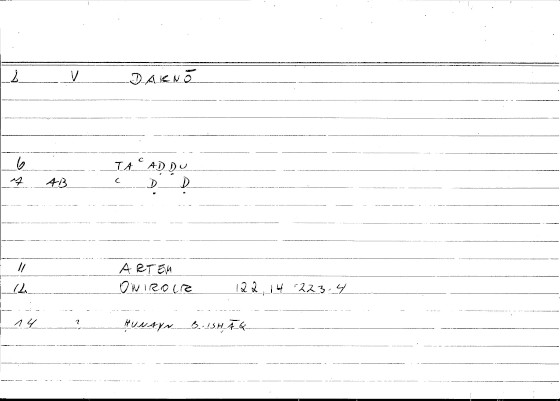 1 V DAKNŌ
6 TAʿAḌḌU
7 AB ʿ Ḍ Ḍ
11 ARTEM
12 ONIROCR 122,14 223.4
14 ? ḤUNAYN B.ISḤĀQ